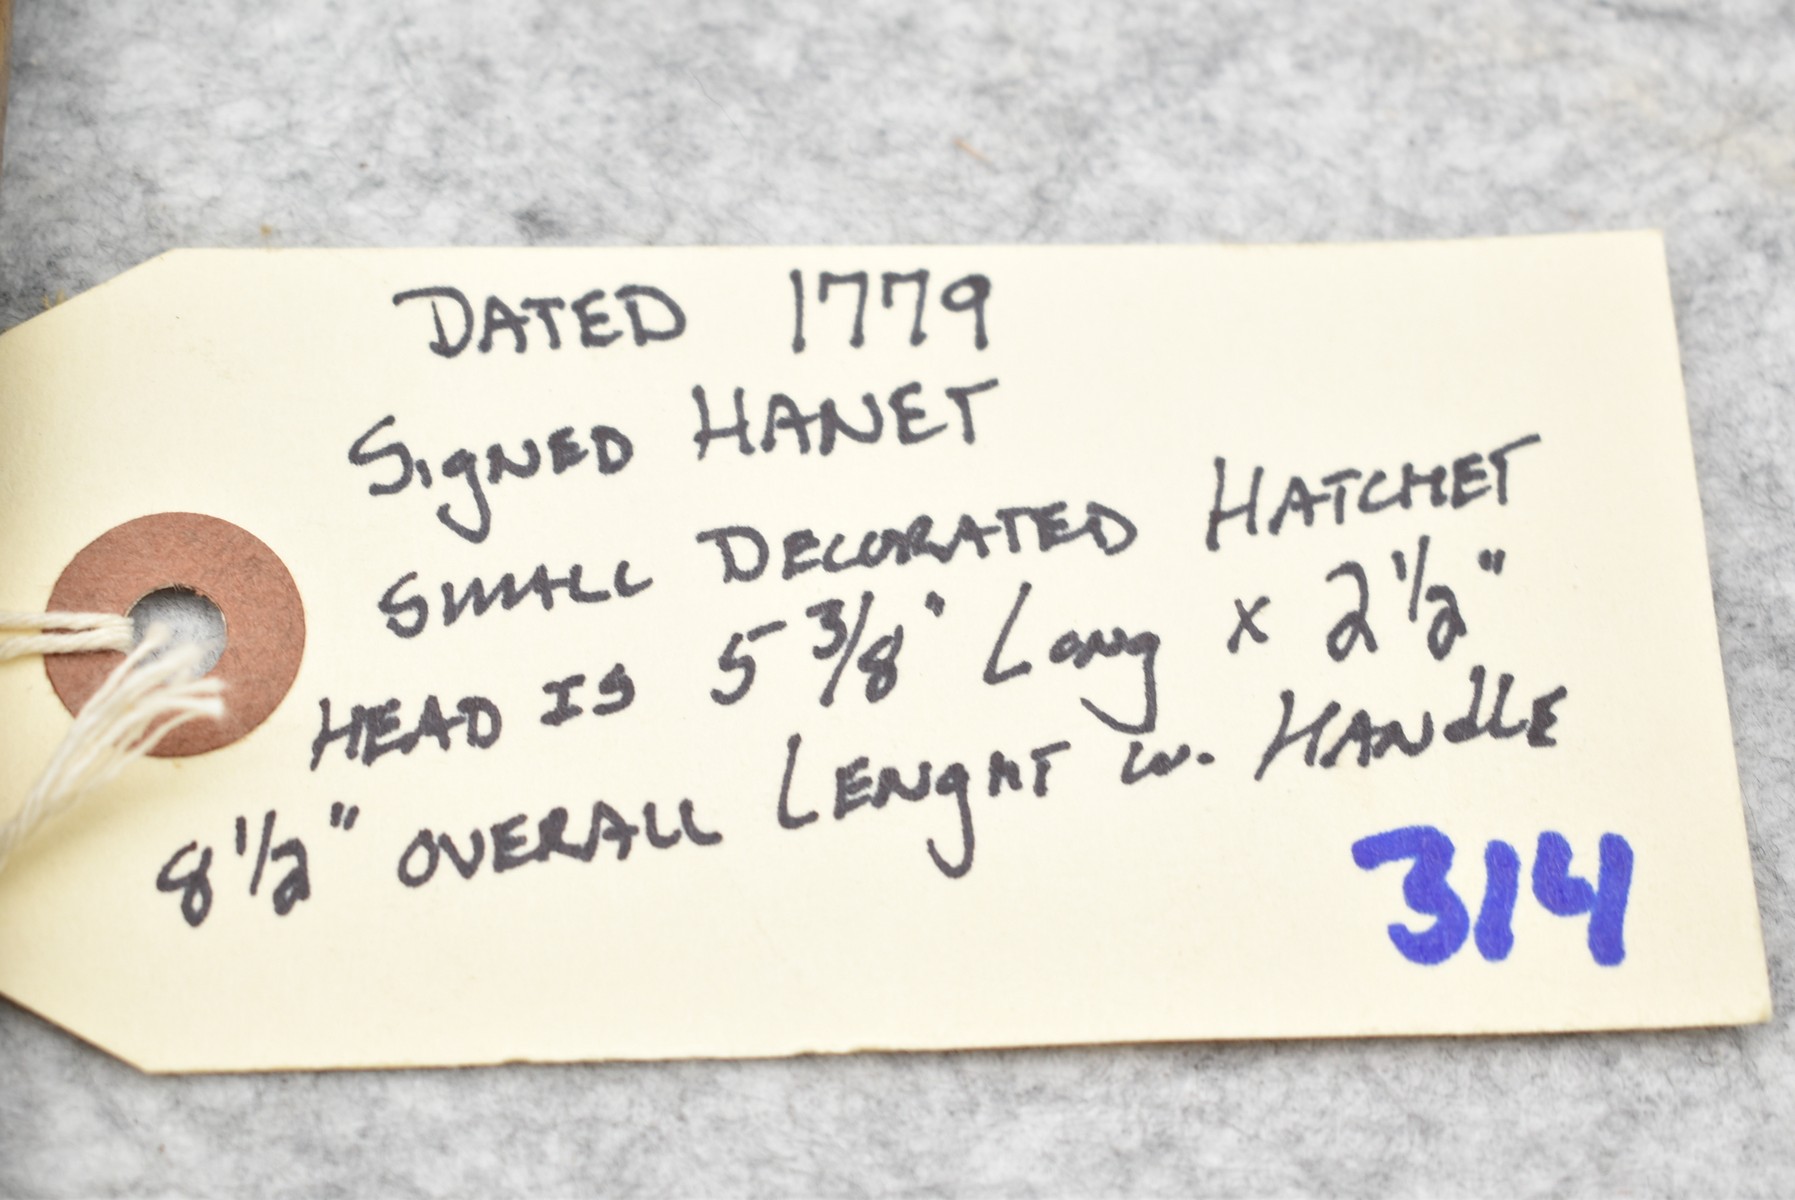 DATED 1779
SIgNED HANET
SMALL DECORATED HATCHET
HEAD IS 5 3/8" Long x 2 1/2"
8 1/2" OVERALL LENgHT w. HANdLE
314